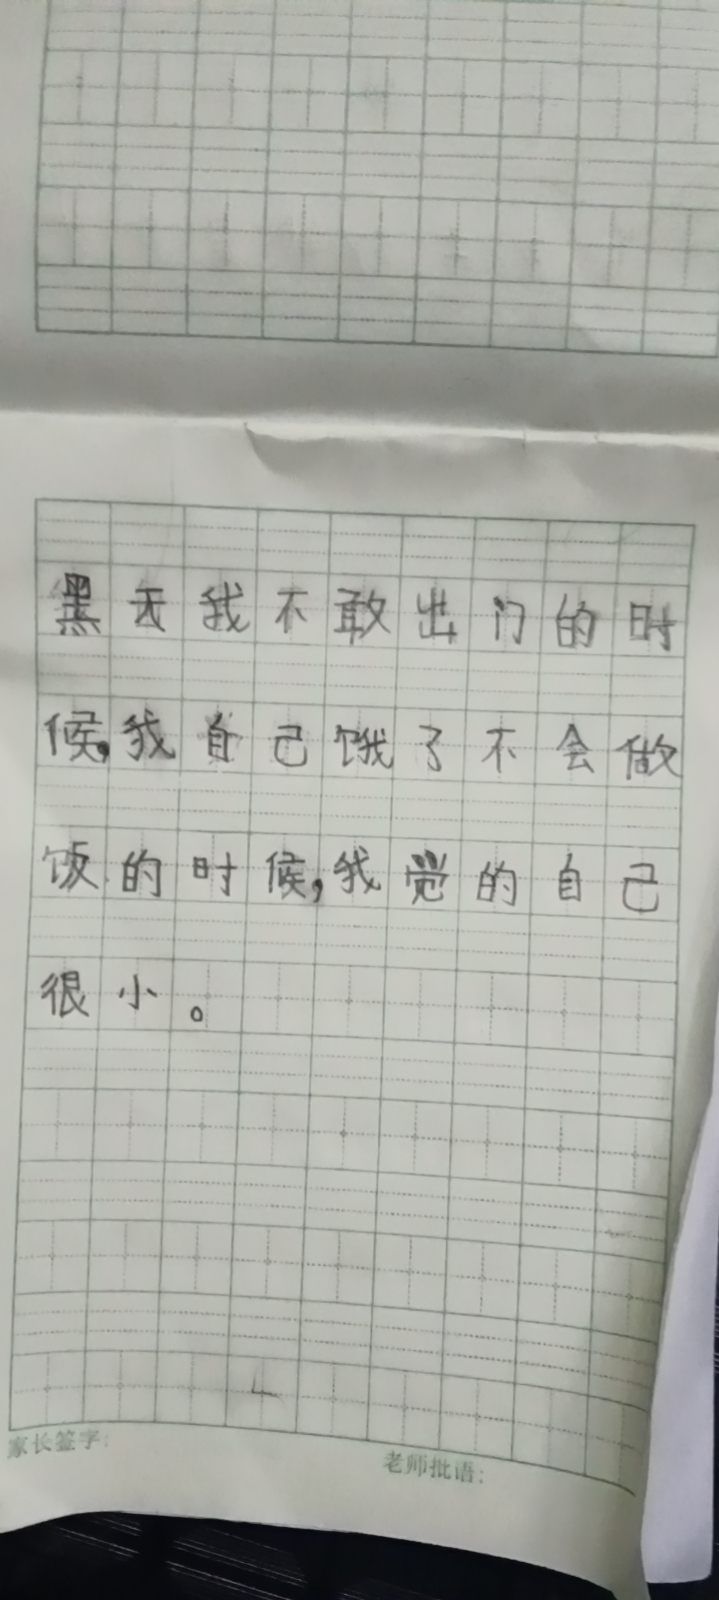 黑天我不敢出门的时
候,我自己饿了不会做
饭的时候,我觉的自己
很小。
家长签字:
老师批语: